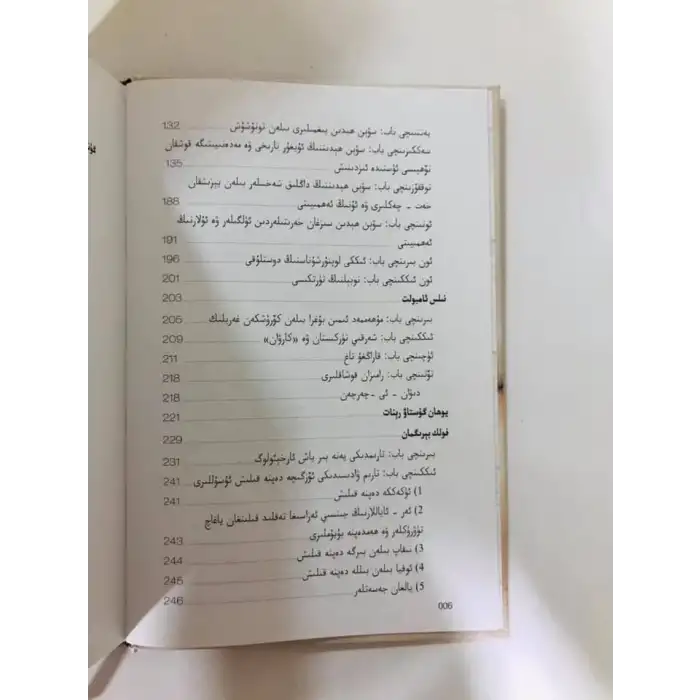 يەتتىنچى باب: سۋېن ھېدىن يىغمىلىرى بىلەن تونۇشۇش 132
سەككىزىنچى باب: سۋېن ھېدىننىڭ ئۇيغۇر تارىخى ۋە مەدەنىيىتىگە قوشقان
تۆھپىسى ئۈستىدە ئىزدىنىش 135
توققۇزىنچى باب: سۋېن ھېدىننىڭ داڭلىق شەخسلەر بىلەن يېزىشقان
خەت - چەكلىرى ۋە ئۇنىڭ ئەھمىيىتى 188
ئونىنچى باب: سۋېن ھېدىن سىزغان خەرىتىلەردىن ئۈلگىلەر ۋە ئۇلارنىڭ
ئەھمىيىتى 191
ئون بىرىنچى باب: ئىككى لوپنۇرشۇناسنىڭ دوستلۇقى 196
ئون ئىككىنچى باب: نوبېلنىڭ تۈرتكىسى 201
نىلس ئامبولت 203
بىرىنچى باب: مۇھەممەد ئىمىن بۇغرا بىلەن كۆرۈشكەن غەربلىك 205
ئىككىنچى باب: شەرقىي تۈركىستان ۋە «كارۋان» 209
ئۈچىنچى باب: قاراڭغۇ تاغ 211
تۆتىنچى باب: رامىزان قوشاقلىرى 218
دىۋان - ئى -چەرچەن 218
يوھان گۇستاۋ رېنات 221
فولك بېرگمان 229
بىرىنچى باب: تارىمدىكى يەنە بىر ياش ئارخېئولوگ 231
ئىككىنچى باب: تارىم ۋادىسىدىكى ئۆزگىچە دەپنە قىلىش ئۇسۇللىرى 241
1) ئۈكەككە دەپنە قىلىش 241
2) ئەر - ئاياللارنىڭ جىنسىي ئەزاسىغا تەقلىد قىلىنغان ياغاچ
تۈۋرۈكلەر ۋە ھەمدەپنە بۇيۇملىرى 243
3) نىقاپ بىلەن بىرگە دەپنە قىلىش 244
4) ئوقيا بىلەن بىللە دەپنە قىلىش 245
5) يالغان جەسەتلەر 246
006